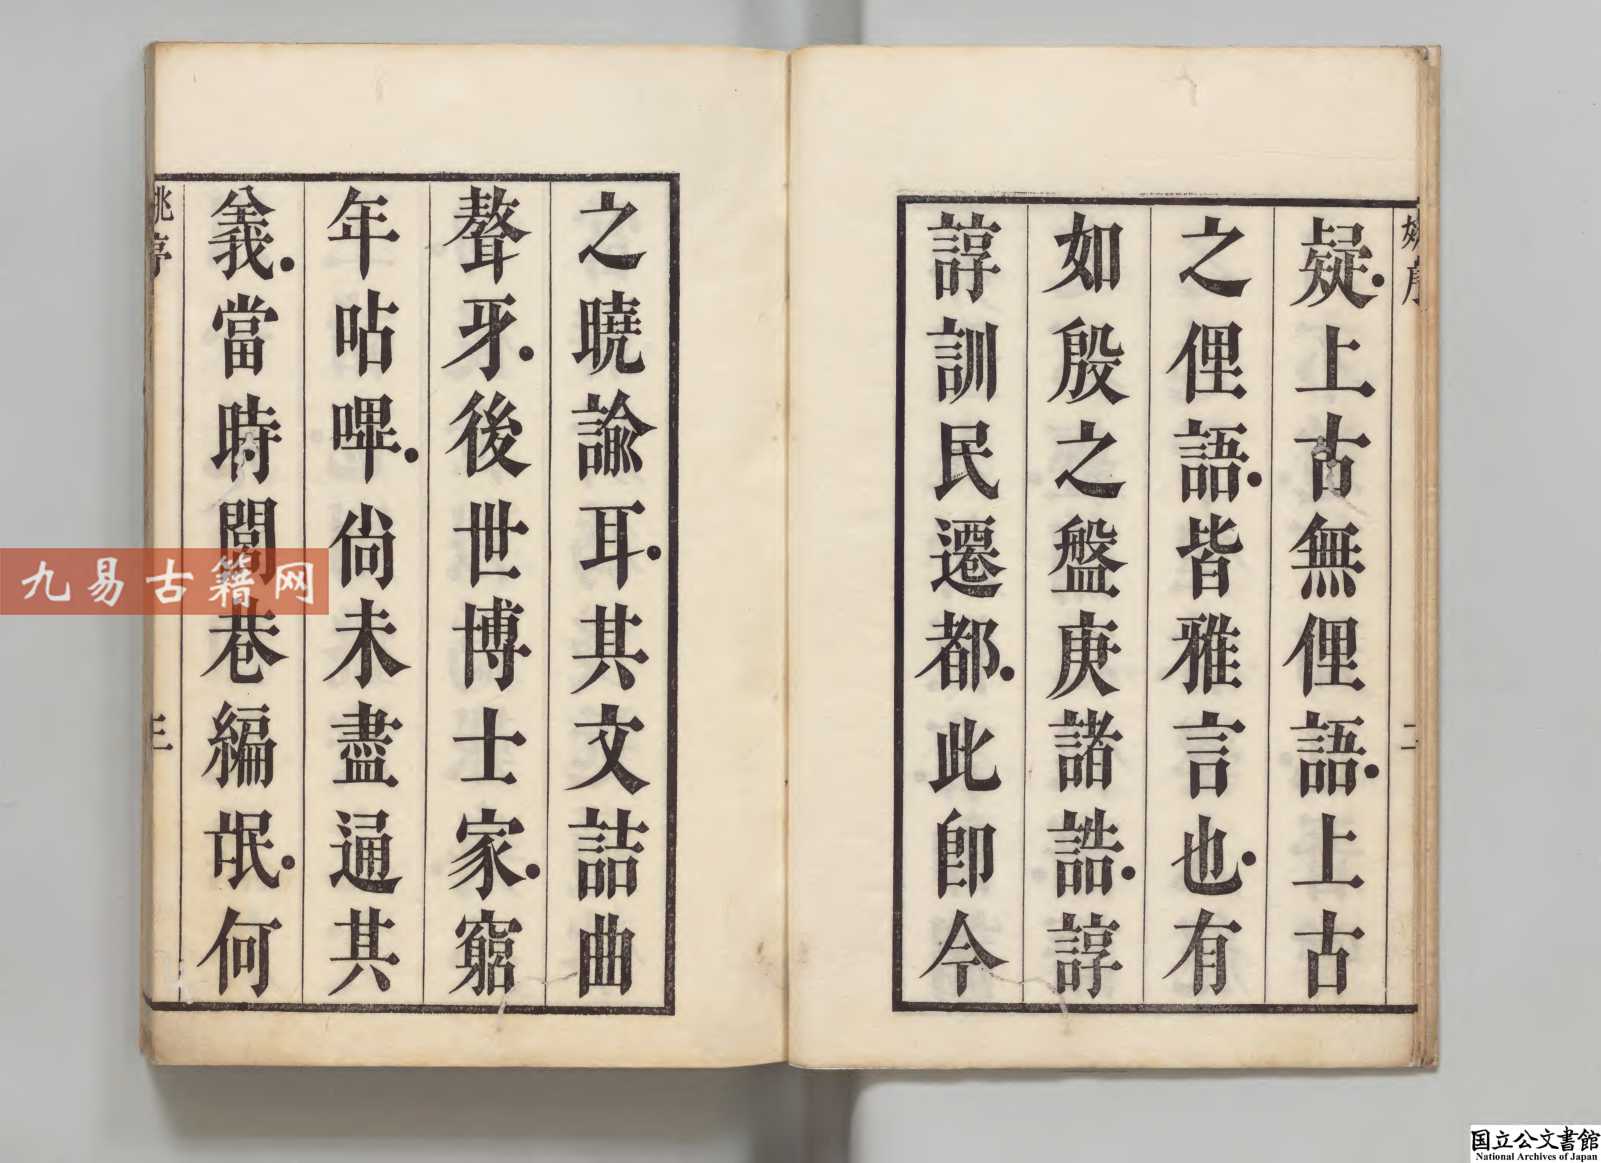 疑。上古無俚語。上古
之俚語。皆雅言也。有
如殷之盤庚諸誥。諄
諄訓民遷都。此卽今
之曉諭耳。其文詰曲
聱牙。後世博士家。窮
年呫嗶。尙未盡通其
義。當時閭巷編氓。何
二
三
九易古籍网
国立公文書館
National Archives of Japan